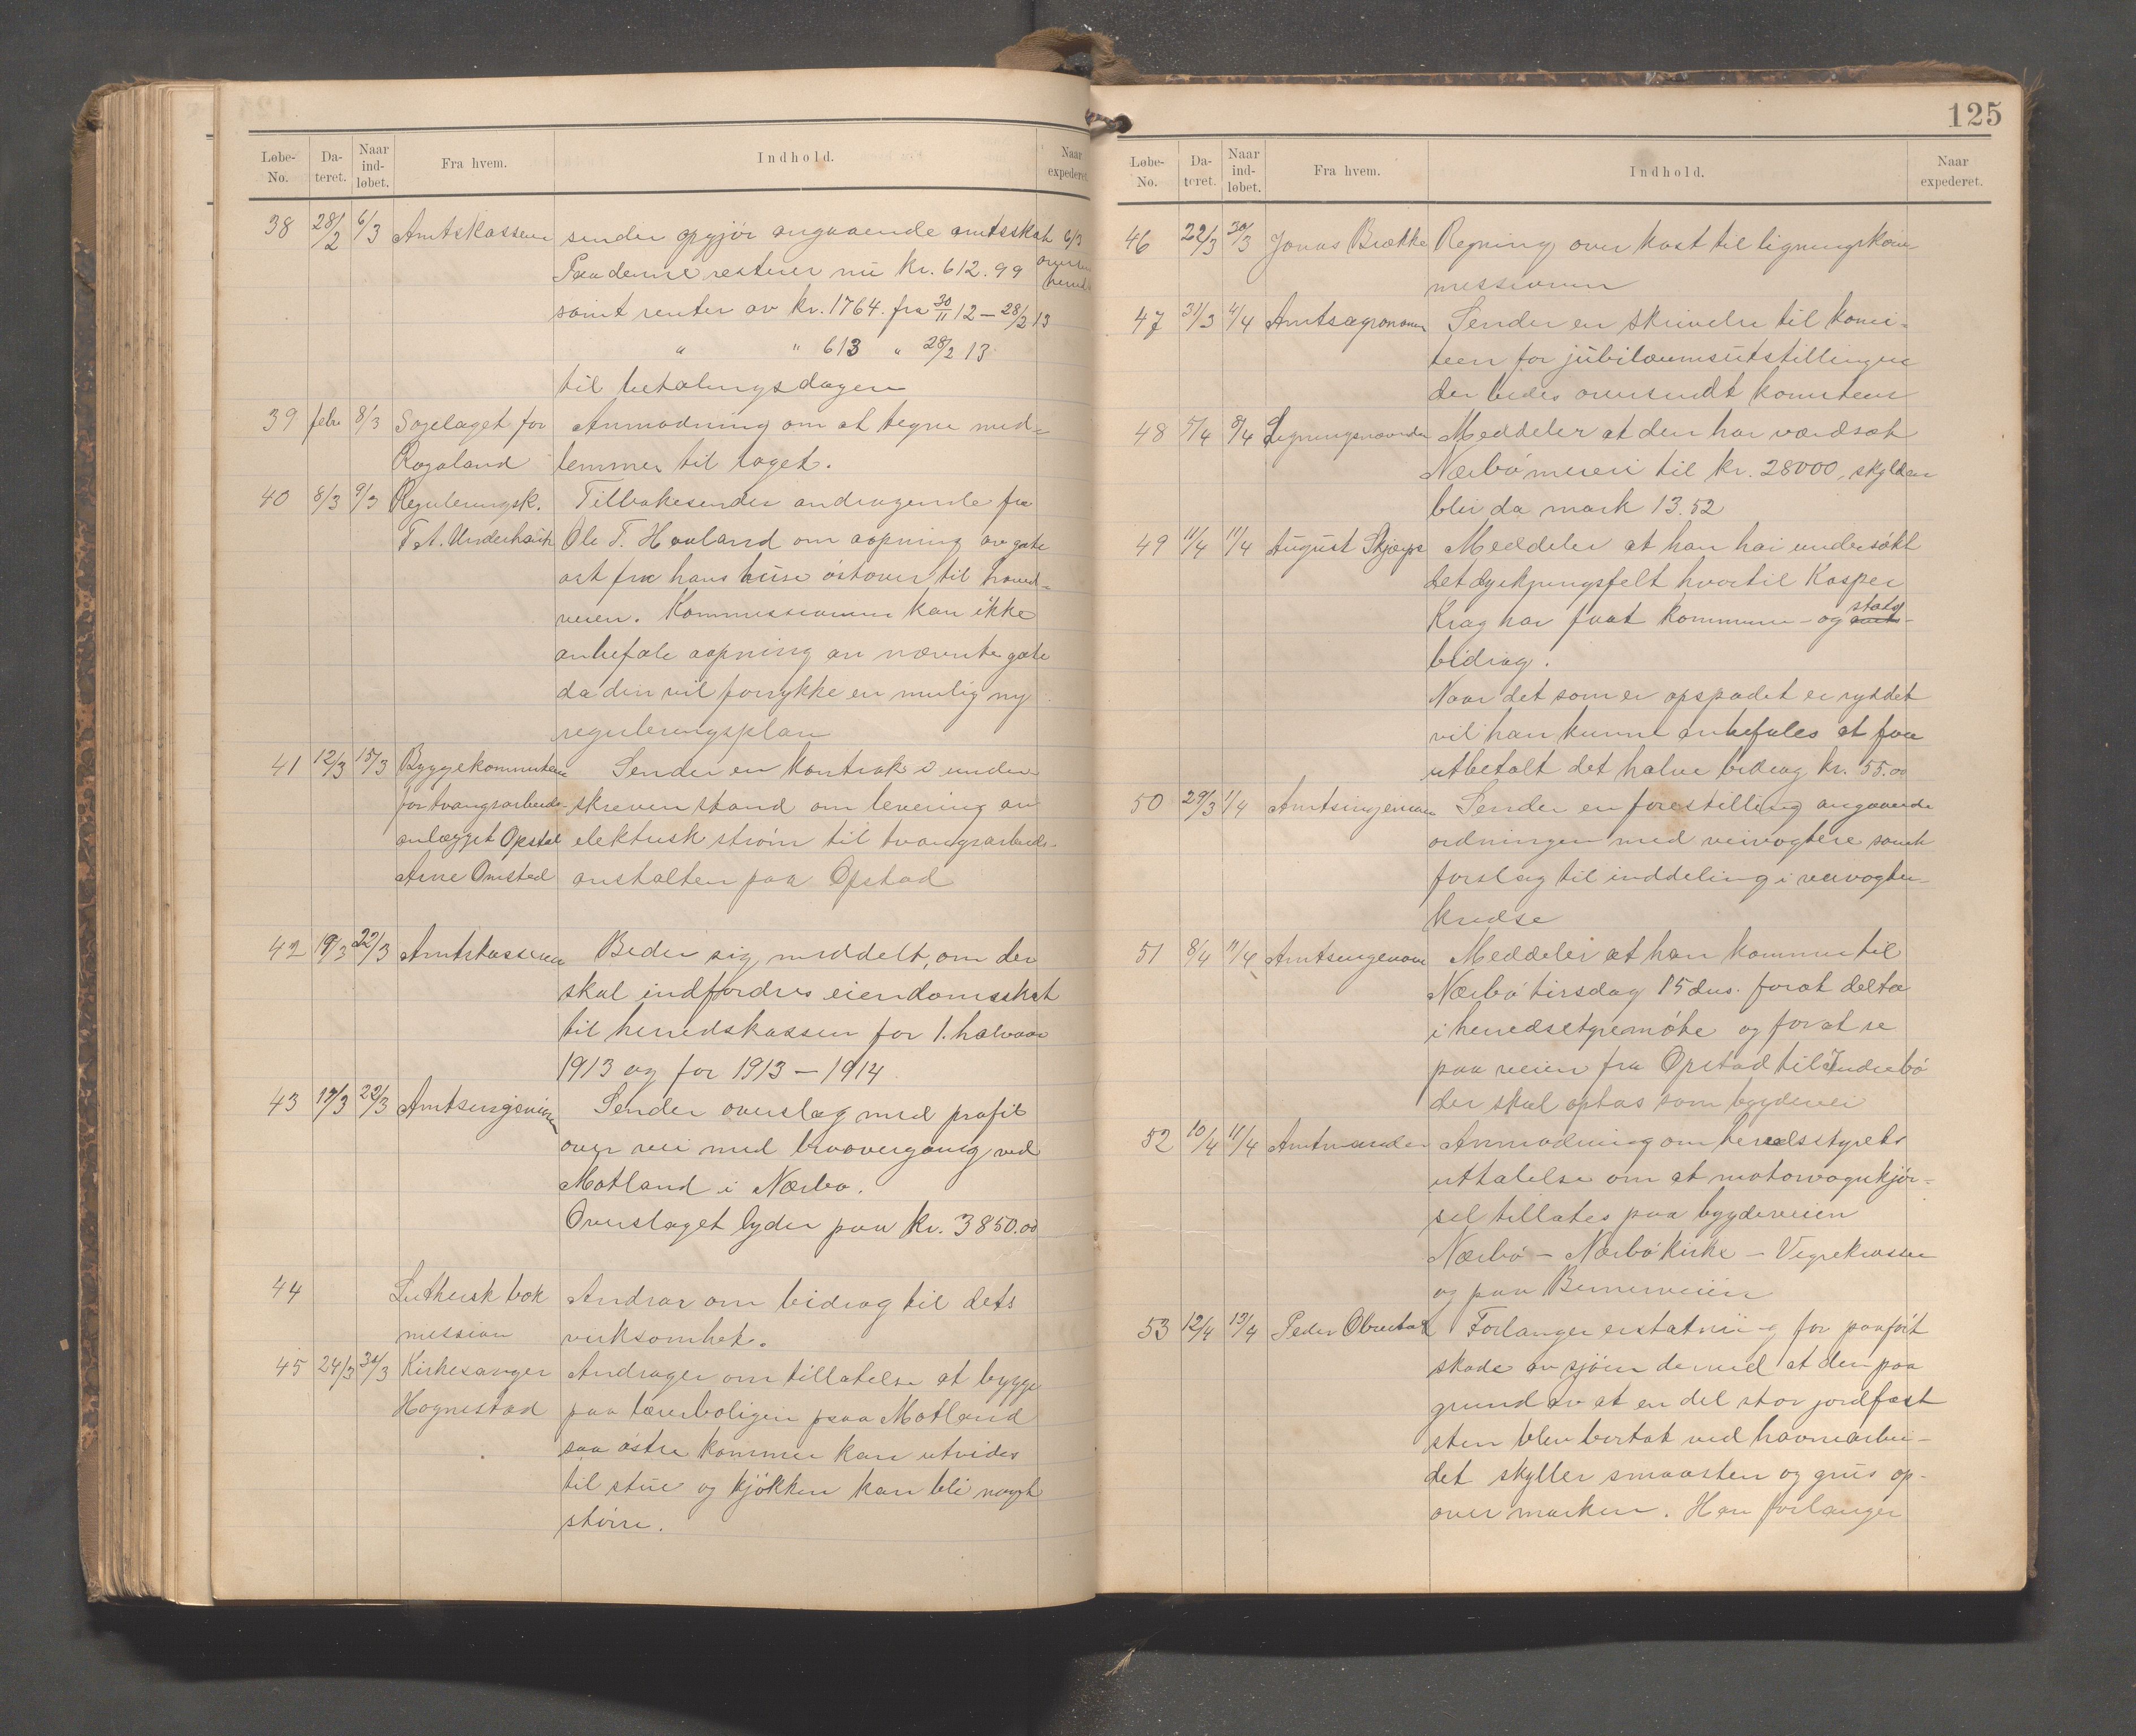 Løbe-No. Da-teret. Naar ind-løbet. Fra hvem. Indhold. Naar expederet.
38 28/2 6/3 Amtskassen sender opgjør angaaende amtsskat 6/3
Paa denne resterer nu kr. 612.99
samt renter av kr. 1764. fra 30/11 12 – 28/2 13
" " 613 " 28/2 13
til betalingsdagen
39 febr 8/3 Sogelaget for Anmodning om at tegne med-
Rogaland lemmer til laget.
40 8/3 9/3 Reguleringsk. Tilbakesender andragende fra
T. A. Underhaug Ole T. Hauland om aapning av gate
ast fra hans huse østover til hoved-
veien. Kommissionen kan ikke
anbefale aapning av nævnte gate
da den vil forrykke en mulig ny
reguleringsplan
41 12/3 15/3 Byggekomiteen Sender en kontrakt i under-
for tvangsarbeids- skreven stand om levering av
anlægget Opstad elektrisk strøm til tvangsarbeids-
Arne Omsted anstalten paa Opstad
42 19/3 22/3 Amtskassereren Beder sig meddelt, om der
skal indfordres eiendomsskat
til herredskassen for 1. halvaar
1913 og for 1913 – 1914
43 17/3 22/3 Amtsingeniøren Sender overslag med profil
over vei med broovergang ved
Motland i Nærbø.
Overslaget lyder paa kr. 3850.00
44 Luthersk bok Andrar om bidrag til dets
mission virksomhet.
45 24/3 31/3 Kirkesanger Andrager om tillatelse at bygge
Hognestad paa lærerboligen paa Motland
saa østre kammer kan utvides
til stue og kjøkken kan bli noget
større.
125
Løbe-No. Da-teret. Naar ind-løbet. Fra hvem. Indhold. Naar expederet.
46 22/3 30/3 Jonas Brætke Regning over kost til ligningskom
messionen
47 31/3 4/4 Amtsagronomen Sender en skrivelse til komi-
teen for jubilæumsutstillingen
der bedes oversendt komiteen
48 5/4 8/4 Ligningsnævnden Meddeler at den har værdsat
Nærbø meieri til kr. 28000, skylden
blir da mark 13.52
49 11/4 11/4 August Skjæps Meddeler at han har undersøkt
det dyrkningsfelt hvortil Kasper
Krag har faat kommune- og stats-
bidrag.
Naar det som er opspadet er ryddet
vil han kunne anbefales at faa
utbetalt det halve bidrag kr. 55.00
50 29/3 1/4 Amtsingeniøren Sender en forestilling angaaende
ordningen med veivogtere samt
forslag til inddeling i veivogter-
kredse
51 8/4 11/4 Amtsingeniøren Meddeler at han kommer til
Nærbø tirsdag 15 dns. forat delta
i herredsstyremøte og for at se
paa veien fra Opstad til Indrebø
der skal optas som bygdevei
52 10/4 11/4 Amtmanden Anmodning om herredsstyrets
uttalelse om at motorvognkjør-
sel tillates paa bygdeveien
Nærbø – Nærbø kirke – Vigrekrossen
og paa Bernerveien
53 12/4 13/4 Peder Obrestad Forlanger erstatning for paaført
skade av sjøen derved at den paa
grund av at en del stor jordfast
sten blev bortat ved havnearbei-
det skyller smaasten og grus op-
over marken. Han forlanger